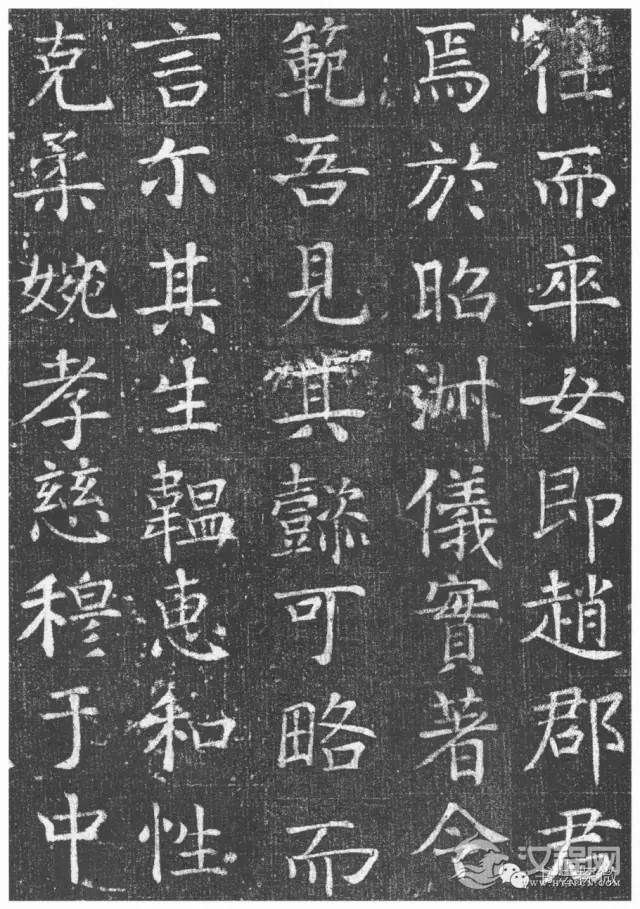 往而卒女即趙郡君
焉於昭淑儀實著令
範吾見其懿可略而
言尒其生韞恵和性
克柔婉孝慈穆于中
汉程网
WWW.HTTPCN.COM